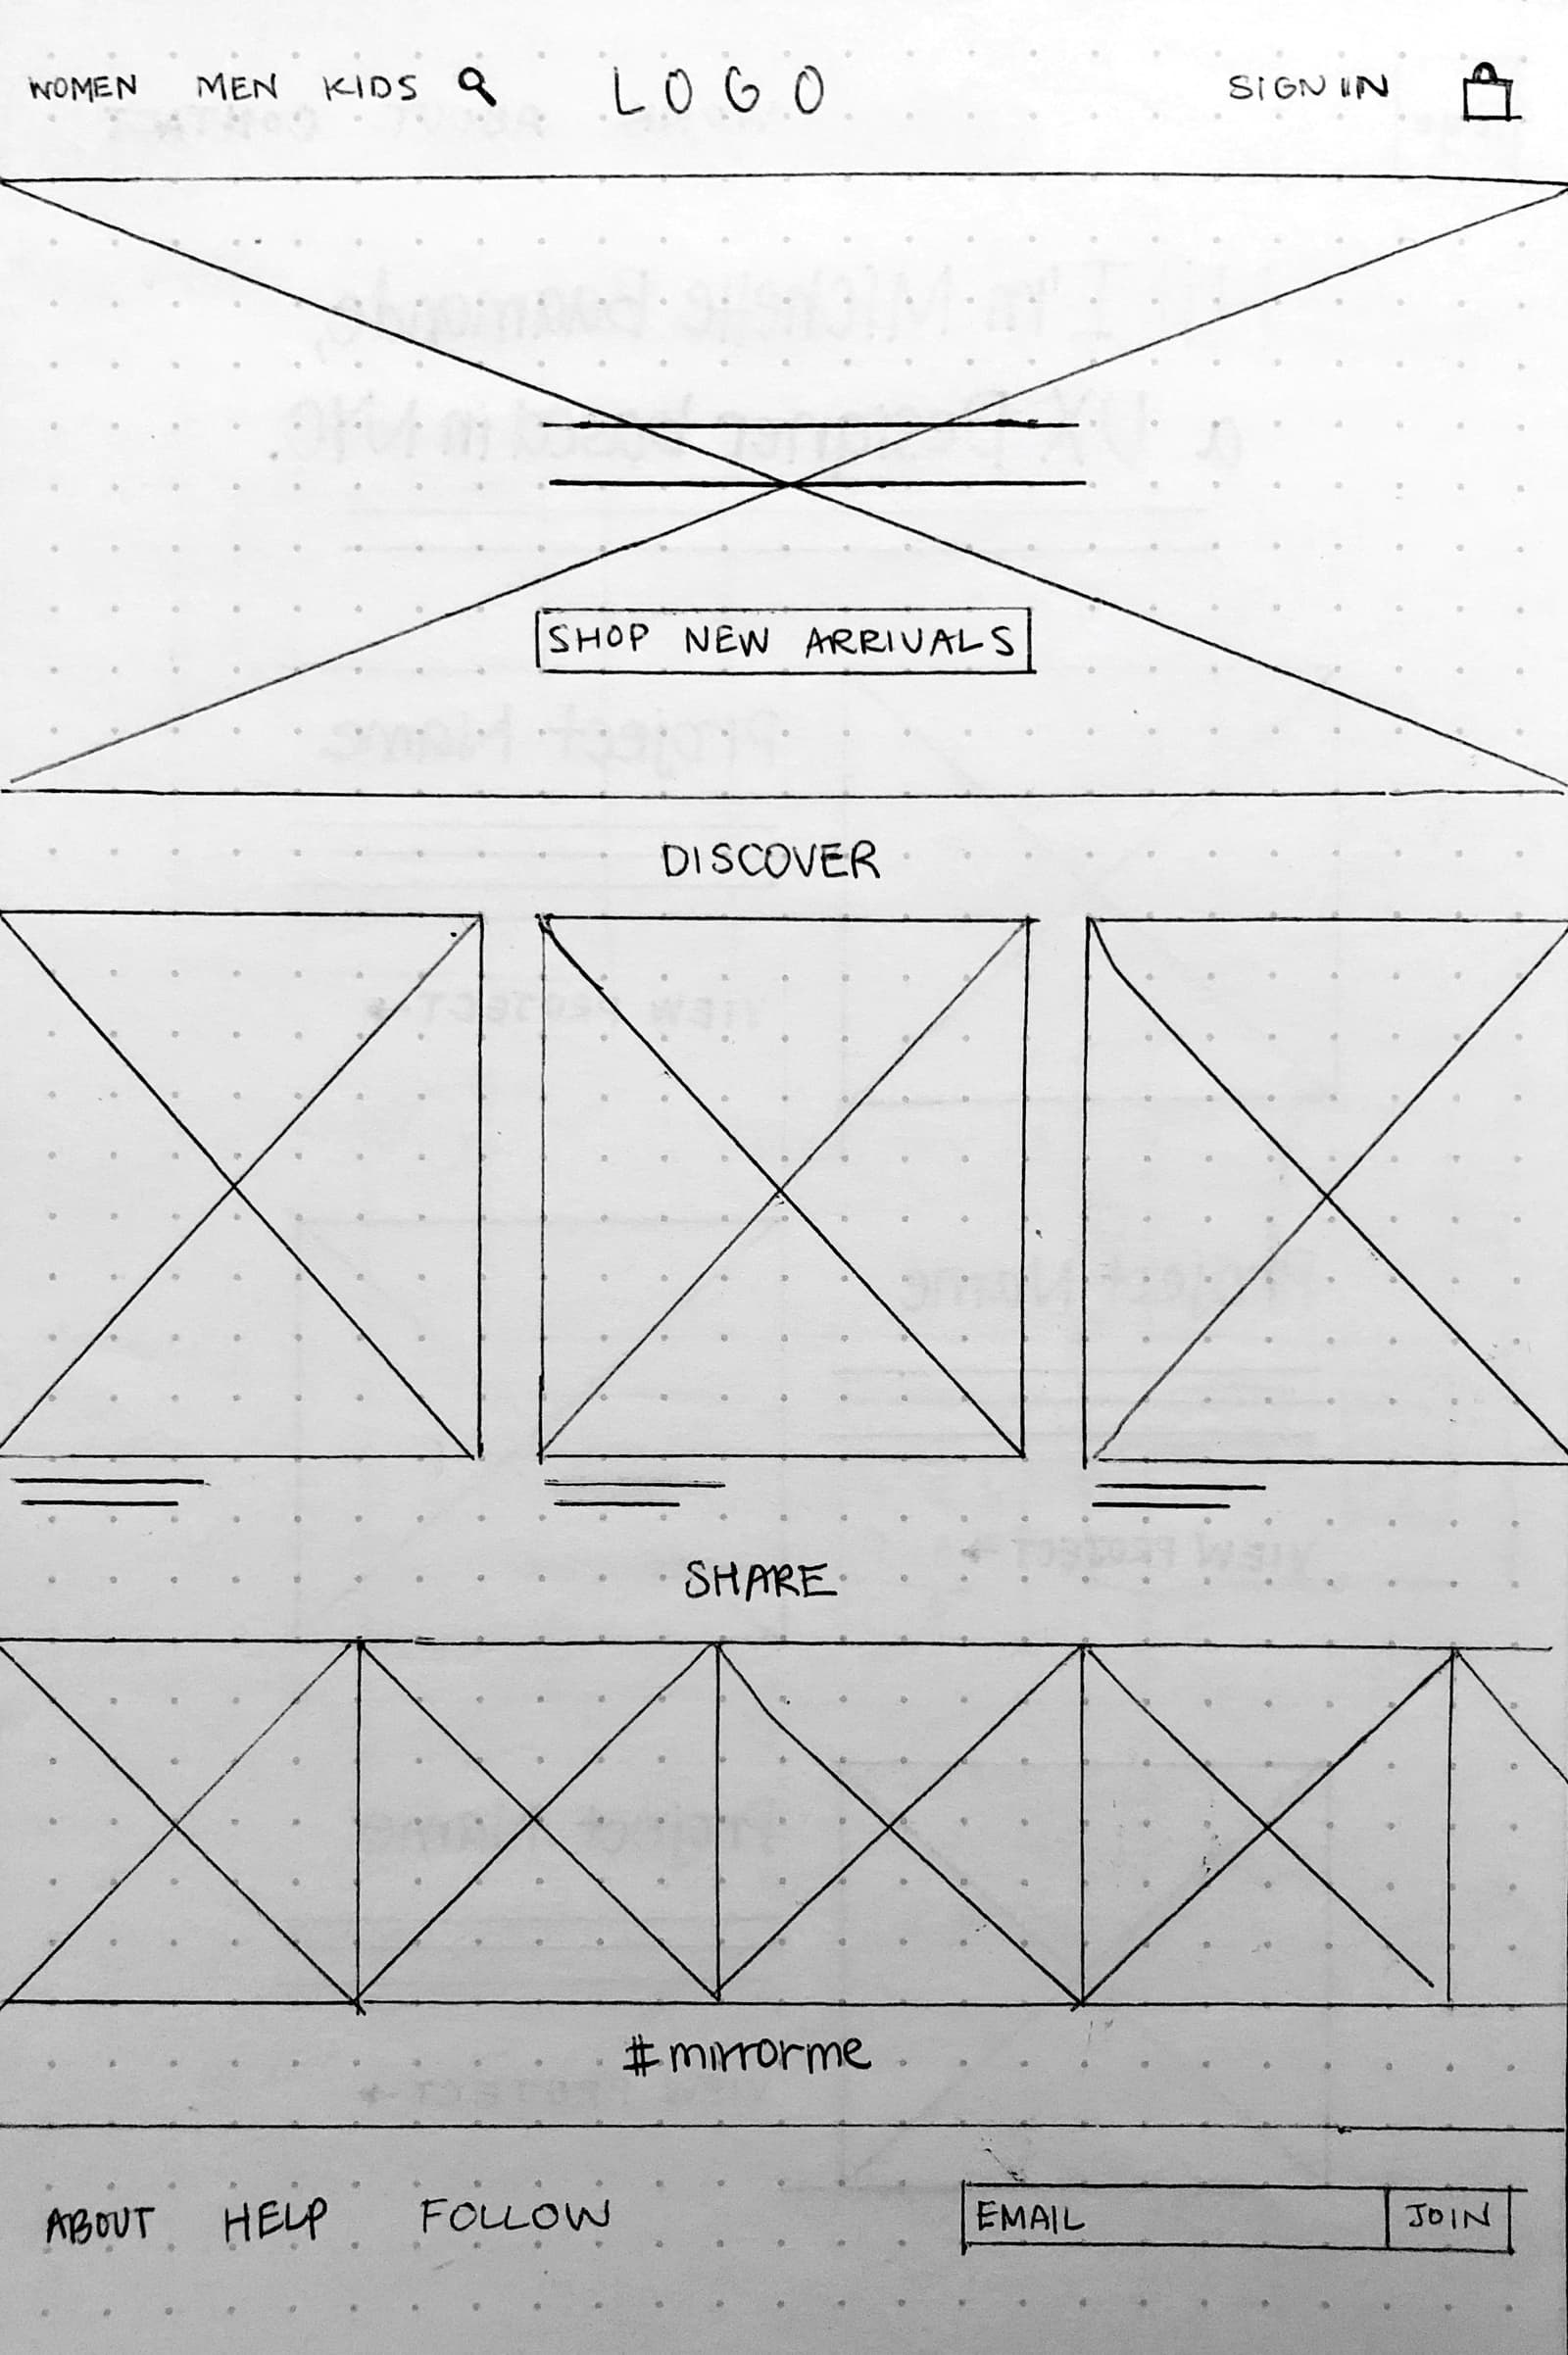 WOMEN MEN KIDS LOGO SIGN IN
SHOP NEW ARRIVALS
DISCOVER
SHARE
#mirrorme
ABOUT HELP FOLLOW EMAIL JOIN